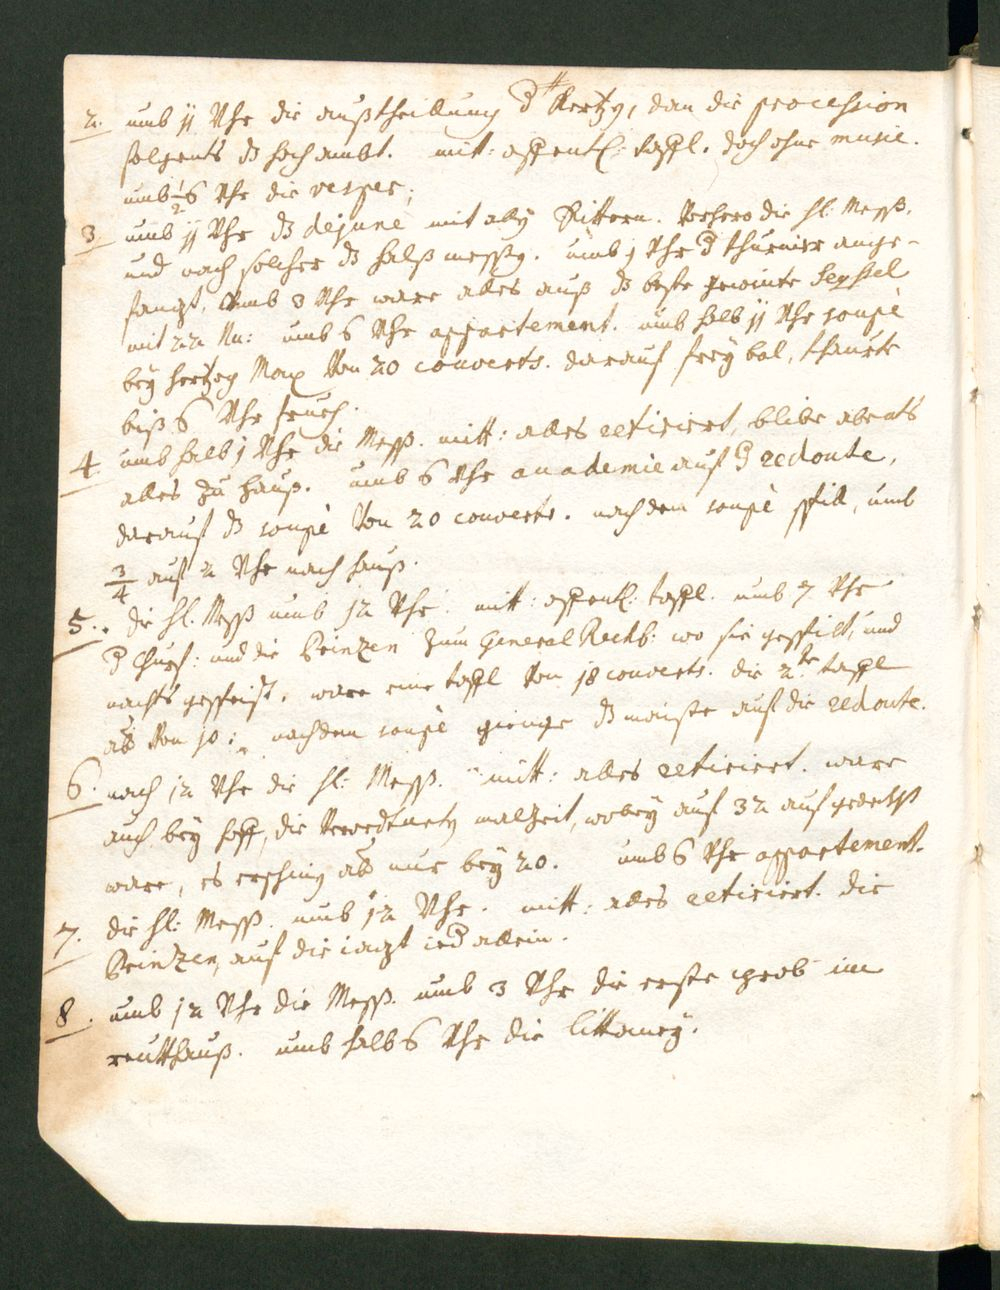 2. umb 11 Uhr die außtheillung d Kertzen, dan die procession
folgents dz hoch ambt. mitt: offentl: taffl. doch ohne music.
umb ½ 6 Uhr die vesper;
3 umb 11 Uhr dz dejuné mit allen Rittern. Vorhero die hl: Mess,
und nach solcher dz halß messen. umb 1 Uhr d thurnier ange-
fangt, umb 3 Uhr ware alles auß dz beste gewinte
mit 22 umb 6 Uhr appartement. umb halb 11 Uhr soupé
bey hertzog Max Von 20 couverts. darauf frey bal, thaurte
biß 6 Uhr frueh.
4 umb halb 1 Uhr die Mess. mitt: alles retiriert, blibe abents
alles zu hauß. umb 6 Uhr accademie auf d redoute,
darauf dz soupé Von 20 couverts. nach dem soupé spill, umb
¾ auf 2 Uhr nach hauß.
5. die hl: Mess umb 12 Uhr. mitt: offentl: taffl. umb 7 Uhr
d Churf: und die Prinzen zum General Rechb: wo sie gespilt, und
nachts gespeist. ware eine taffl Von 18 couverts. die 2te taffl
ab Von 10: nach dem soupé gienge dz maiste auf die redoute.
6. nach 12 Uhr die hl: Mess. mitt: alles retiriert. ware
auch bey hoff, die Verordneten malzeit, wobey auf 32 aufgedekht
ware, es erschinen ab nur bey 20. umb 6 Uhr appartement.
7. die hl: Mess. umb 12 Uhr. mitt: alles retiriert. die
Prinzen, auf die iagt ied allein.
8. umb 12 Uhr die Mess. umb 3 Uhr die erste prob im
reutthauß. umb halb 6 Uhr die littaney.